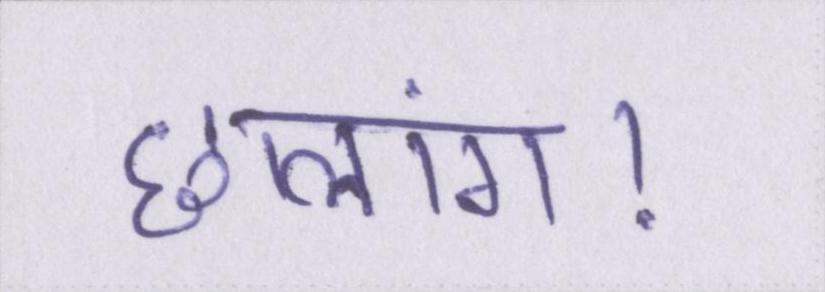 छालांग!